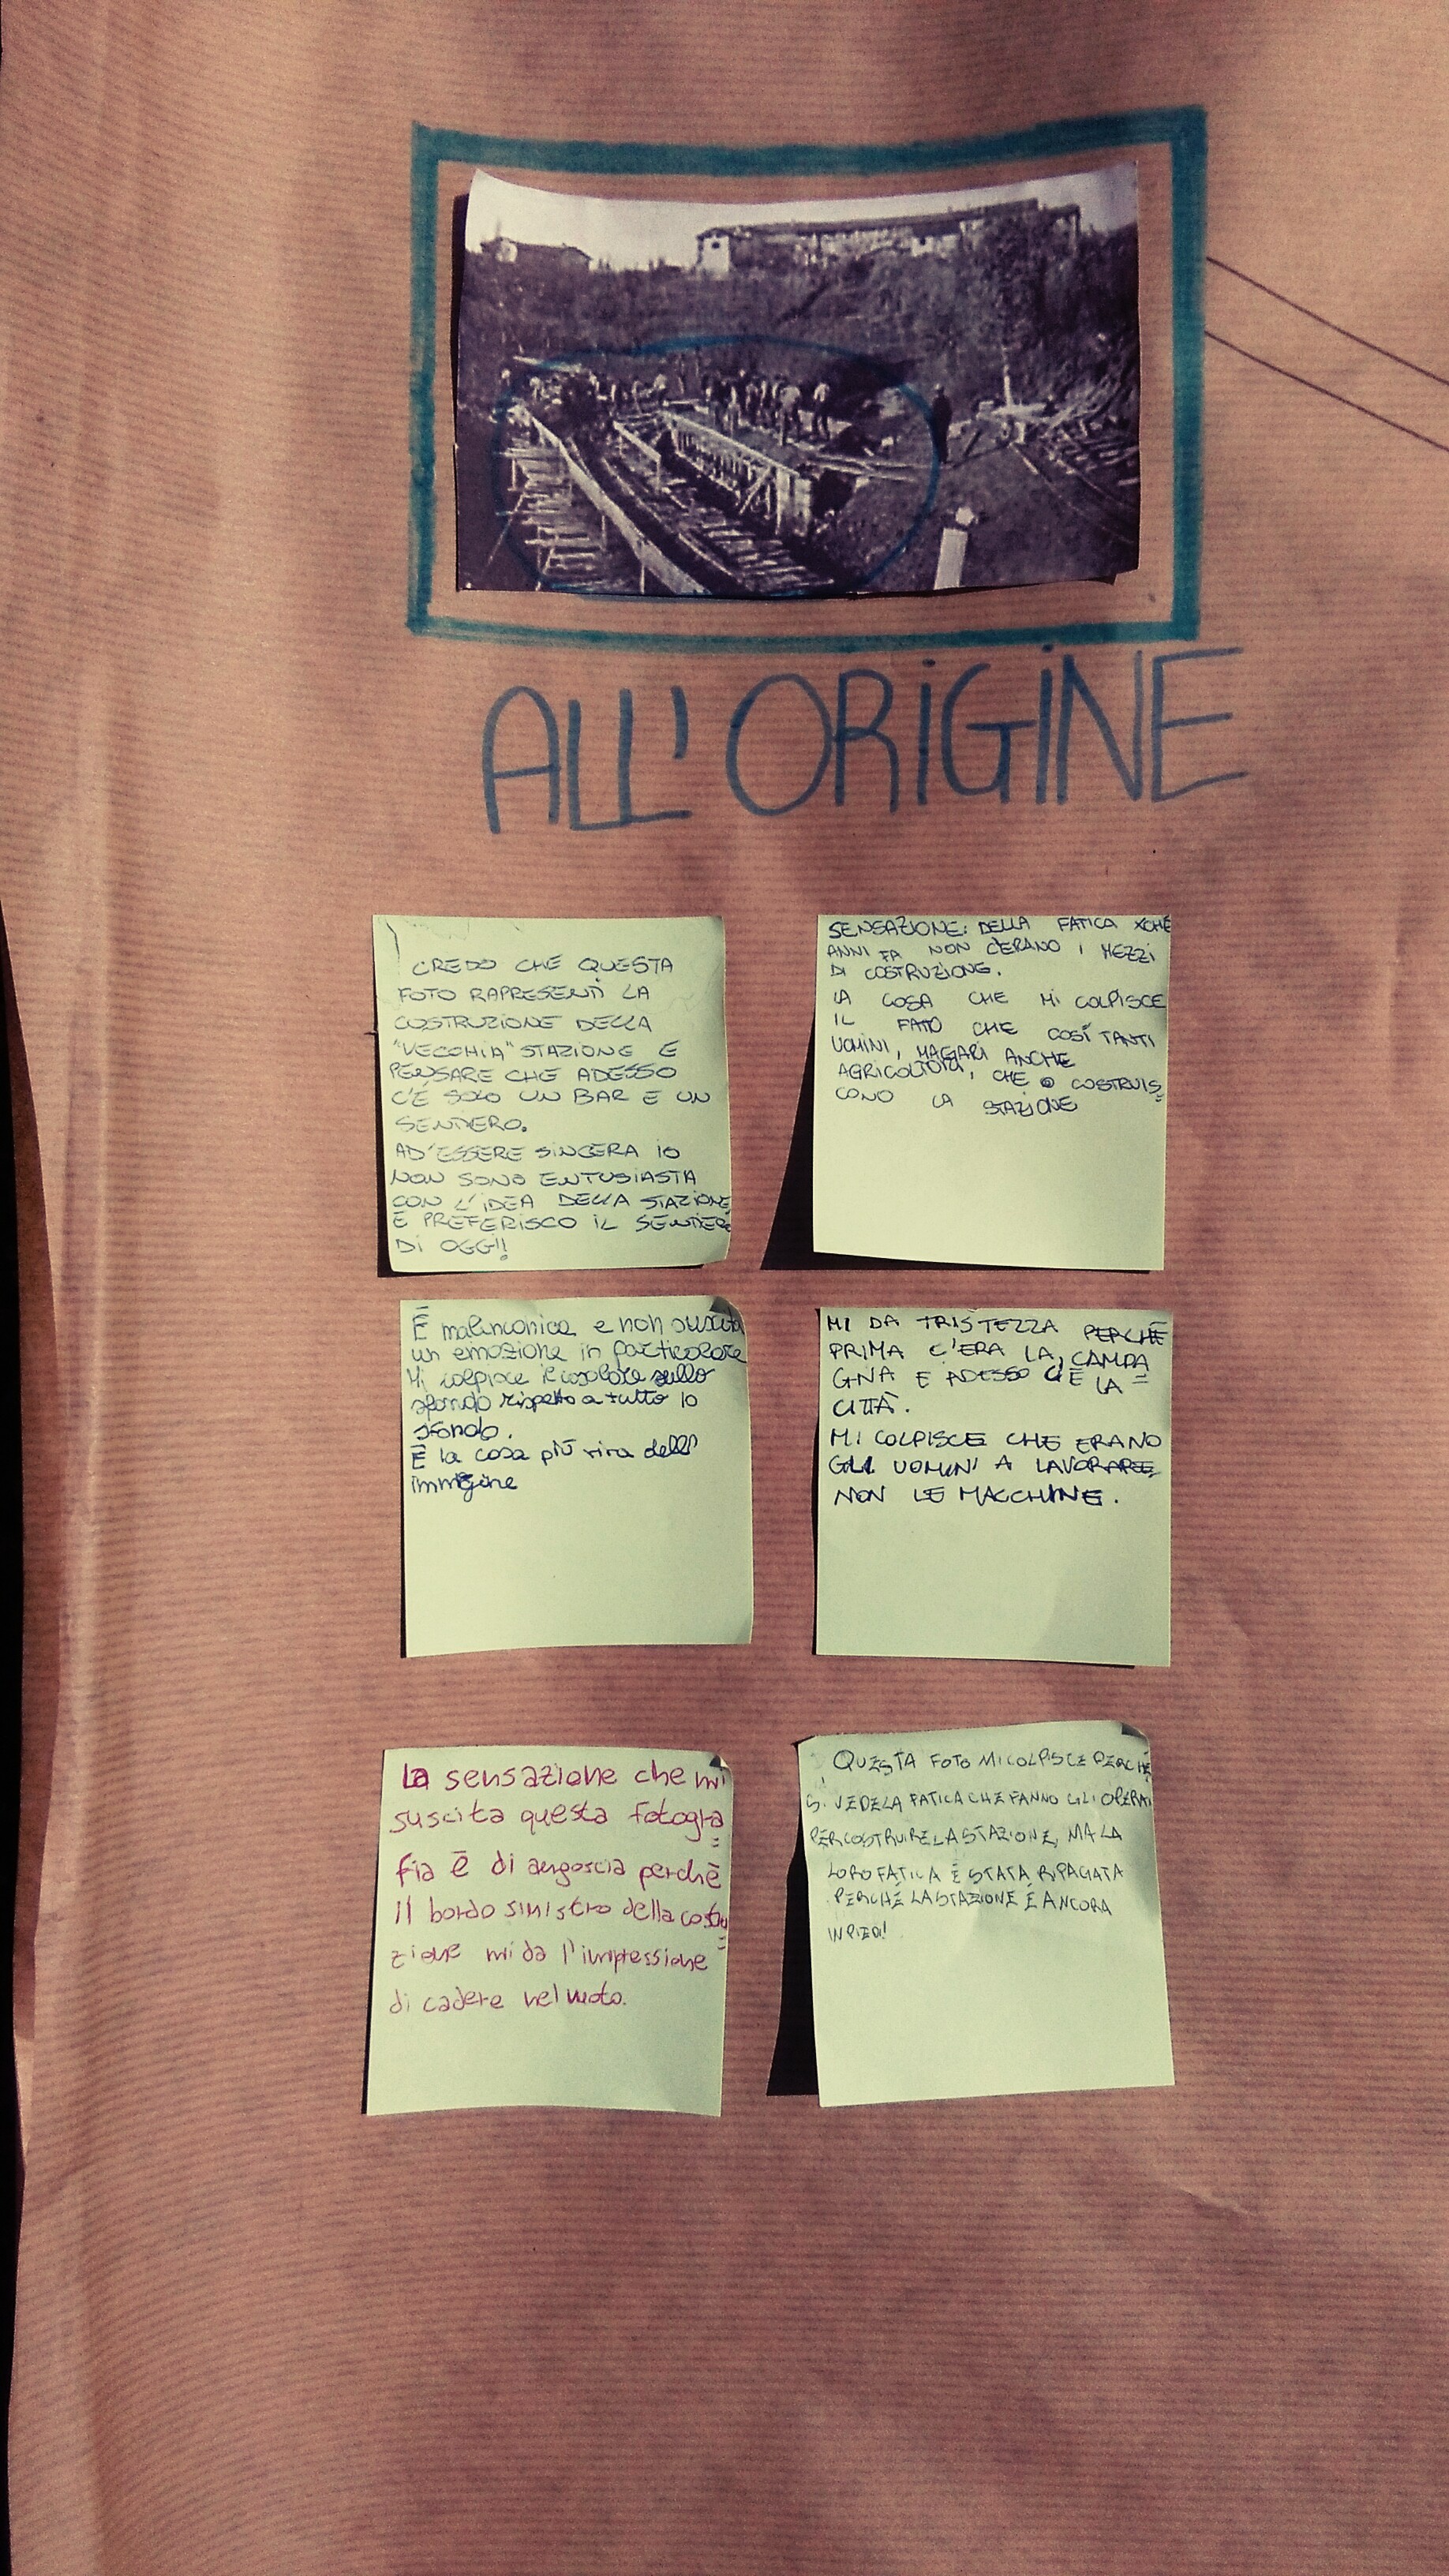 ALL'ORIGINE
CREDO CHE QUESTA
FOTO RAPRESENTI LA
COSTRUZIONE DELLA
"VECCHIA" STAZIONE E
PENSARE CHE ADESSO
C'È SOLO UN BAR E UN
SENTIERO.
AD'ESSERE SINCERA IO
NON SONO ENTUSIASTA
CON L'IDEA DELLA STAZIONE
E PREFERISCO IL SENTIERO
DI OGGI!!
SENSAZIONE: DELLA FATICA XCHÉ
ANNI FA NON C'ERANO I MEZZI
DI COSTRUZIONE.
LA COSA CHE MI COLPISCE
IL FATTO CHE COSÍ TANTI
UOMINI, MAGARI ANCHE
AGRICOLTORI, CHE COSTRUIS=
CONO LA STAZIONE
È malinconica e non suscita
un emozione in particolare
Mi colpisce il casolare sullo
sfondo rispetto a tutto lo
sfondo.
È la cosa più viva dell'
immagine
MI DA TRISTEZZA PERCHÈ
PRIMA C'ERA LA CAMPA=
GNA E ADESSO C'È LA
CITTÀ.
MI COLPISCE CHE ERANO
GLI UOMINI A LAVORARE,
NON LE MACCHINE.
La sensazione che mi
suscita questa fotogra=
fia è di angoscia perchè
il bordo sinistro della costru=
zione mi da l'impressione
di cadere nel vuoto.
QUESTA FOTO MI COLPISCE PERCHÈ
SI VEDE LA FATICA CHE FANNO GLI OPERAI
PER COSTRUIRE LA STAZIONE, MA LA
LORO FATICA È STATA RIPAGATA
PERCHÉ LA STAZIONE È ANCORA
IN PIEDI!